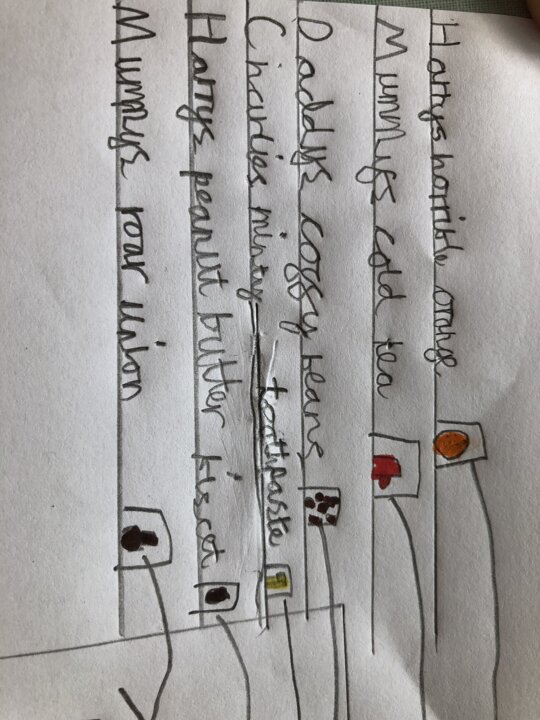 Harrys horrible orange
Mummys cold tea
Daddys coffy beans
Charlies minty toothpaste
Harrys peanut butter biscet
Mummys roar union